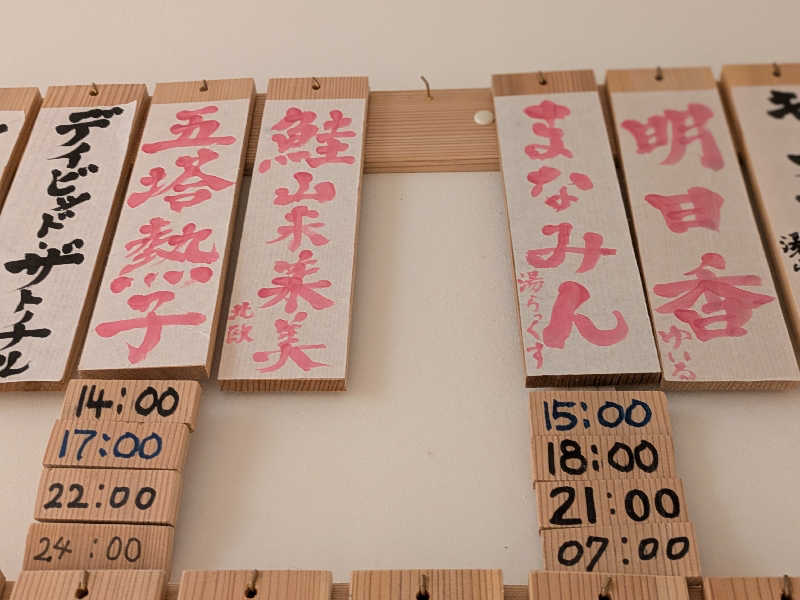 デイビッド・ザ・トーナル
五塔熱子
鮭山未菜美
北欧
まなみん
湯らっくす
明日香
ゆいる
14:00
17:00
22:00
24:00
15:00
18:00
21:00
07:00